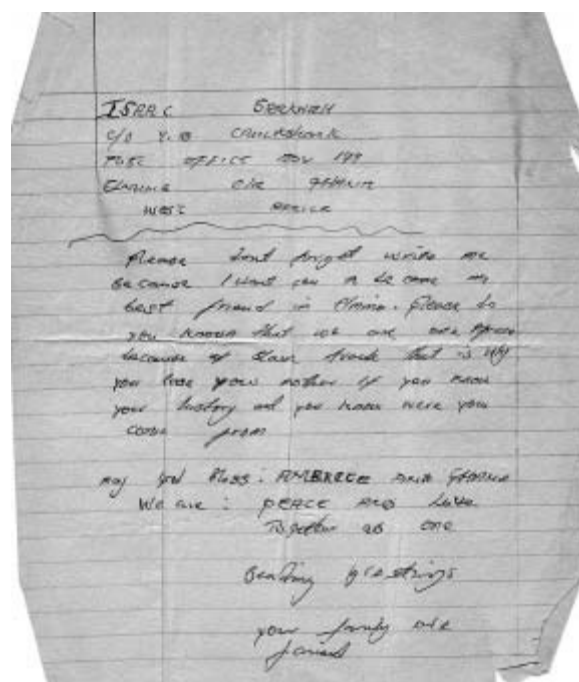 ISAAC
C/O Y. B CRUICKSHANK
POST OFFICE BOX 199
ELMINA C/R GHANA
WEST AFRICA
Please dont forget write me
because I want you to be come my
best friend in Elmina. Please do
you known that we are one
because of Slave trade that is why
you lose your mother if you know
your history and you know were you
come from
may God Bless: and GHANA
We are: PEACE AND Love
Together as one
Sending greetings
your family and
friend